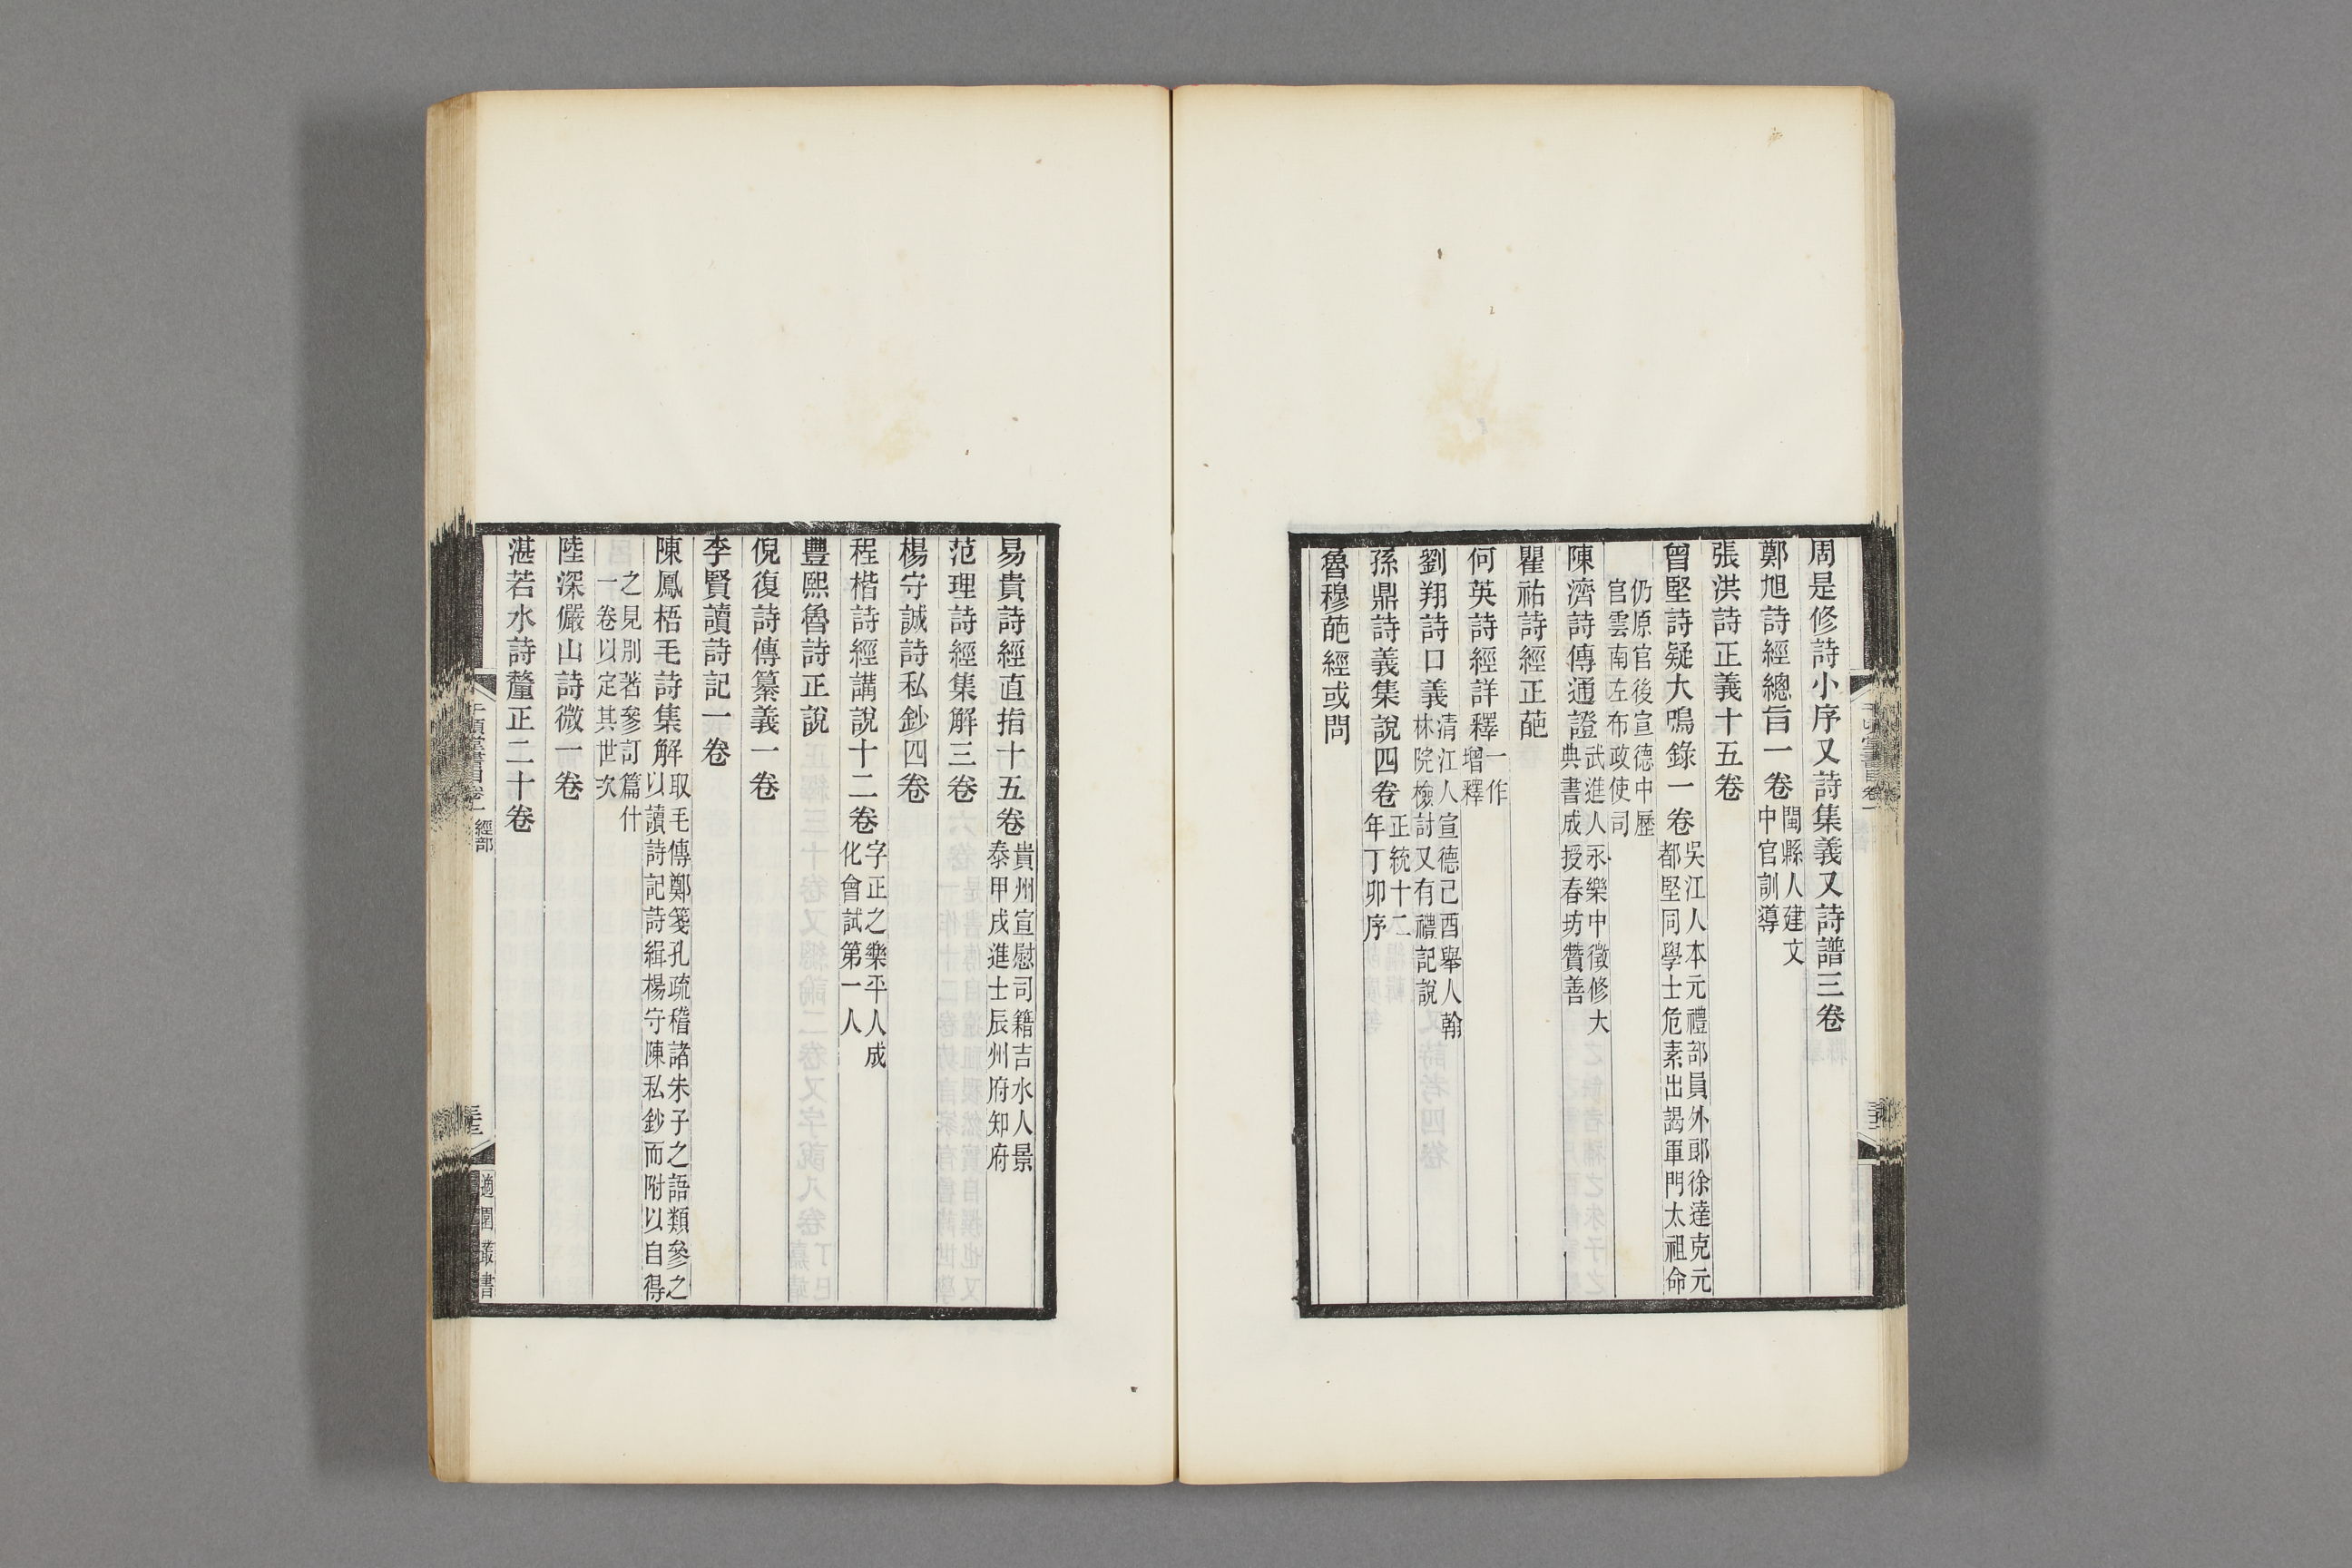 周是修詩小序又詩集義又詩譜三卷
鄭旭詩經總旨一卷閩縣人建文中官訓導
張洪詩正義十五卷
曾堅詩疑大鳴錄一卷吳江人本元禮部員外郎徐達克元都堅同學士危素出謁軍門太祖命
仍原官後宣德中歷官雲南左布政使司
陳濟詩傳通證武進人永樂中徵修大典書成授春坊贊善
瞿祐詩經正葩
何英詩經詳釋一作增釋
劉翔詩口義清江人宣德己酉舉人翰林院檢討又有禮記說
孫鼎詩義集說四卷正統十二年丁卯序
魯穆葩經或問
易貴詩經直指十五卷貴州宣慰司籍吉水人景泰甲戌進士辰州府知府
范理詩經集解三卷
楊守誠詩私鈔四卷
程楷詩經講說十二卷字正之樂平人成化會試第一人
豐熙魯詩正說
倪復詩傳纂義一卷
李賢讀詩記一卷
陳鳳梧毛詩集解取毛傳鄭箋孔疏稽諸朱子之語類參之以讀詩記詩緝楊守陳私鈔而附以自得
之見別著參訂篇什一卷以定其世次
陸深儼山詩微一卷
湛若水詩釐正二十卷
千頃堂書目卷一 經部
適園叢書